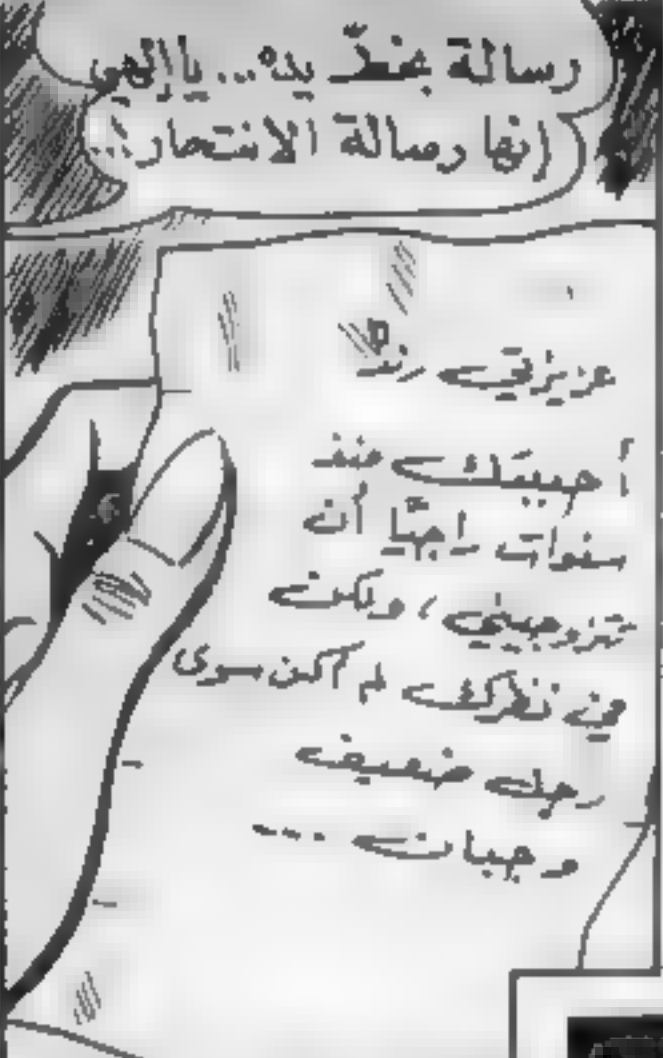 رسالة بخطّ يده... يا إلهي
إنها رسالة الانتحار!..
عزيزتي رند
أحببتك منذ
سنوات راجيًا أن
تتزوجيني، ولكن
في نظرك لم أكن سوى
رجل ضعيف
وجبان ...